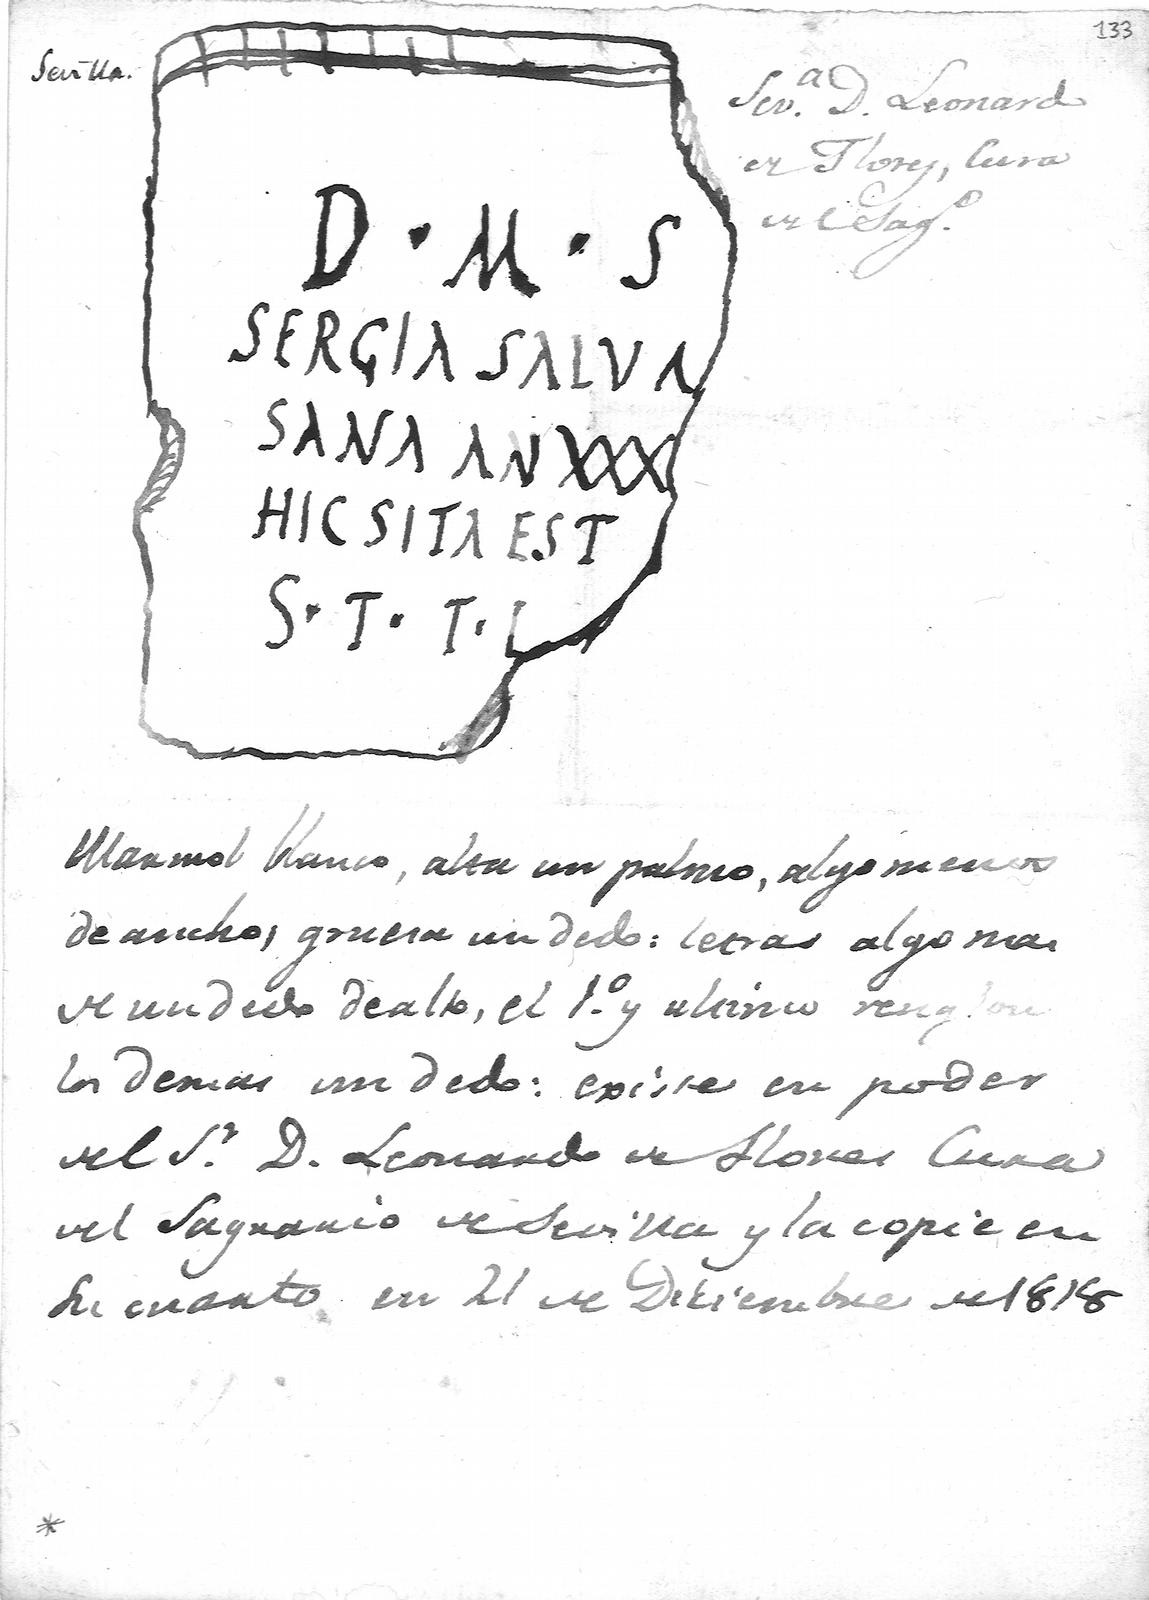 133
Sevilla.
Sev.ª D. Leonard
de Flores, Cura
del Sag.º
D · M · S
SERGIA SALVA
SANA AN XXX
HIC SITA EST
S · T · T · L
Marmol blanco, alta un palmo, algo menos
de ancho, gruesa un dedo: letras algo mas
de un dedo de alto, el 1.º y ultimo renglon
los demas un dedo: existe en poder
del S.r D. Leonardo de Flores Cura
del Sagrario de Sevilla y la copie en
su cuarto en 21 de Diciembre de 1818
*